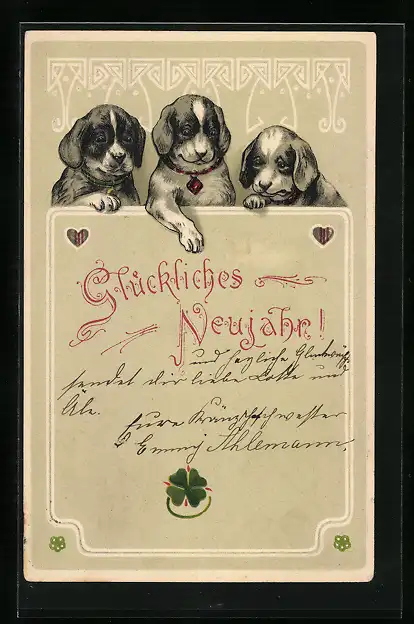 Glückliches
Neujahr!
und herzliche Glückwünsche
sendet dir liebe Lotte und
Eure Kränzchschwester
Emmy Ahlemann.